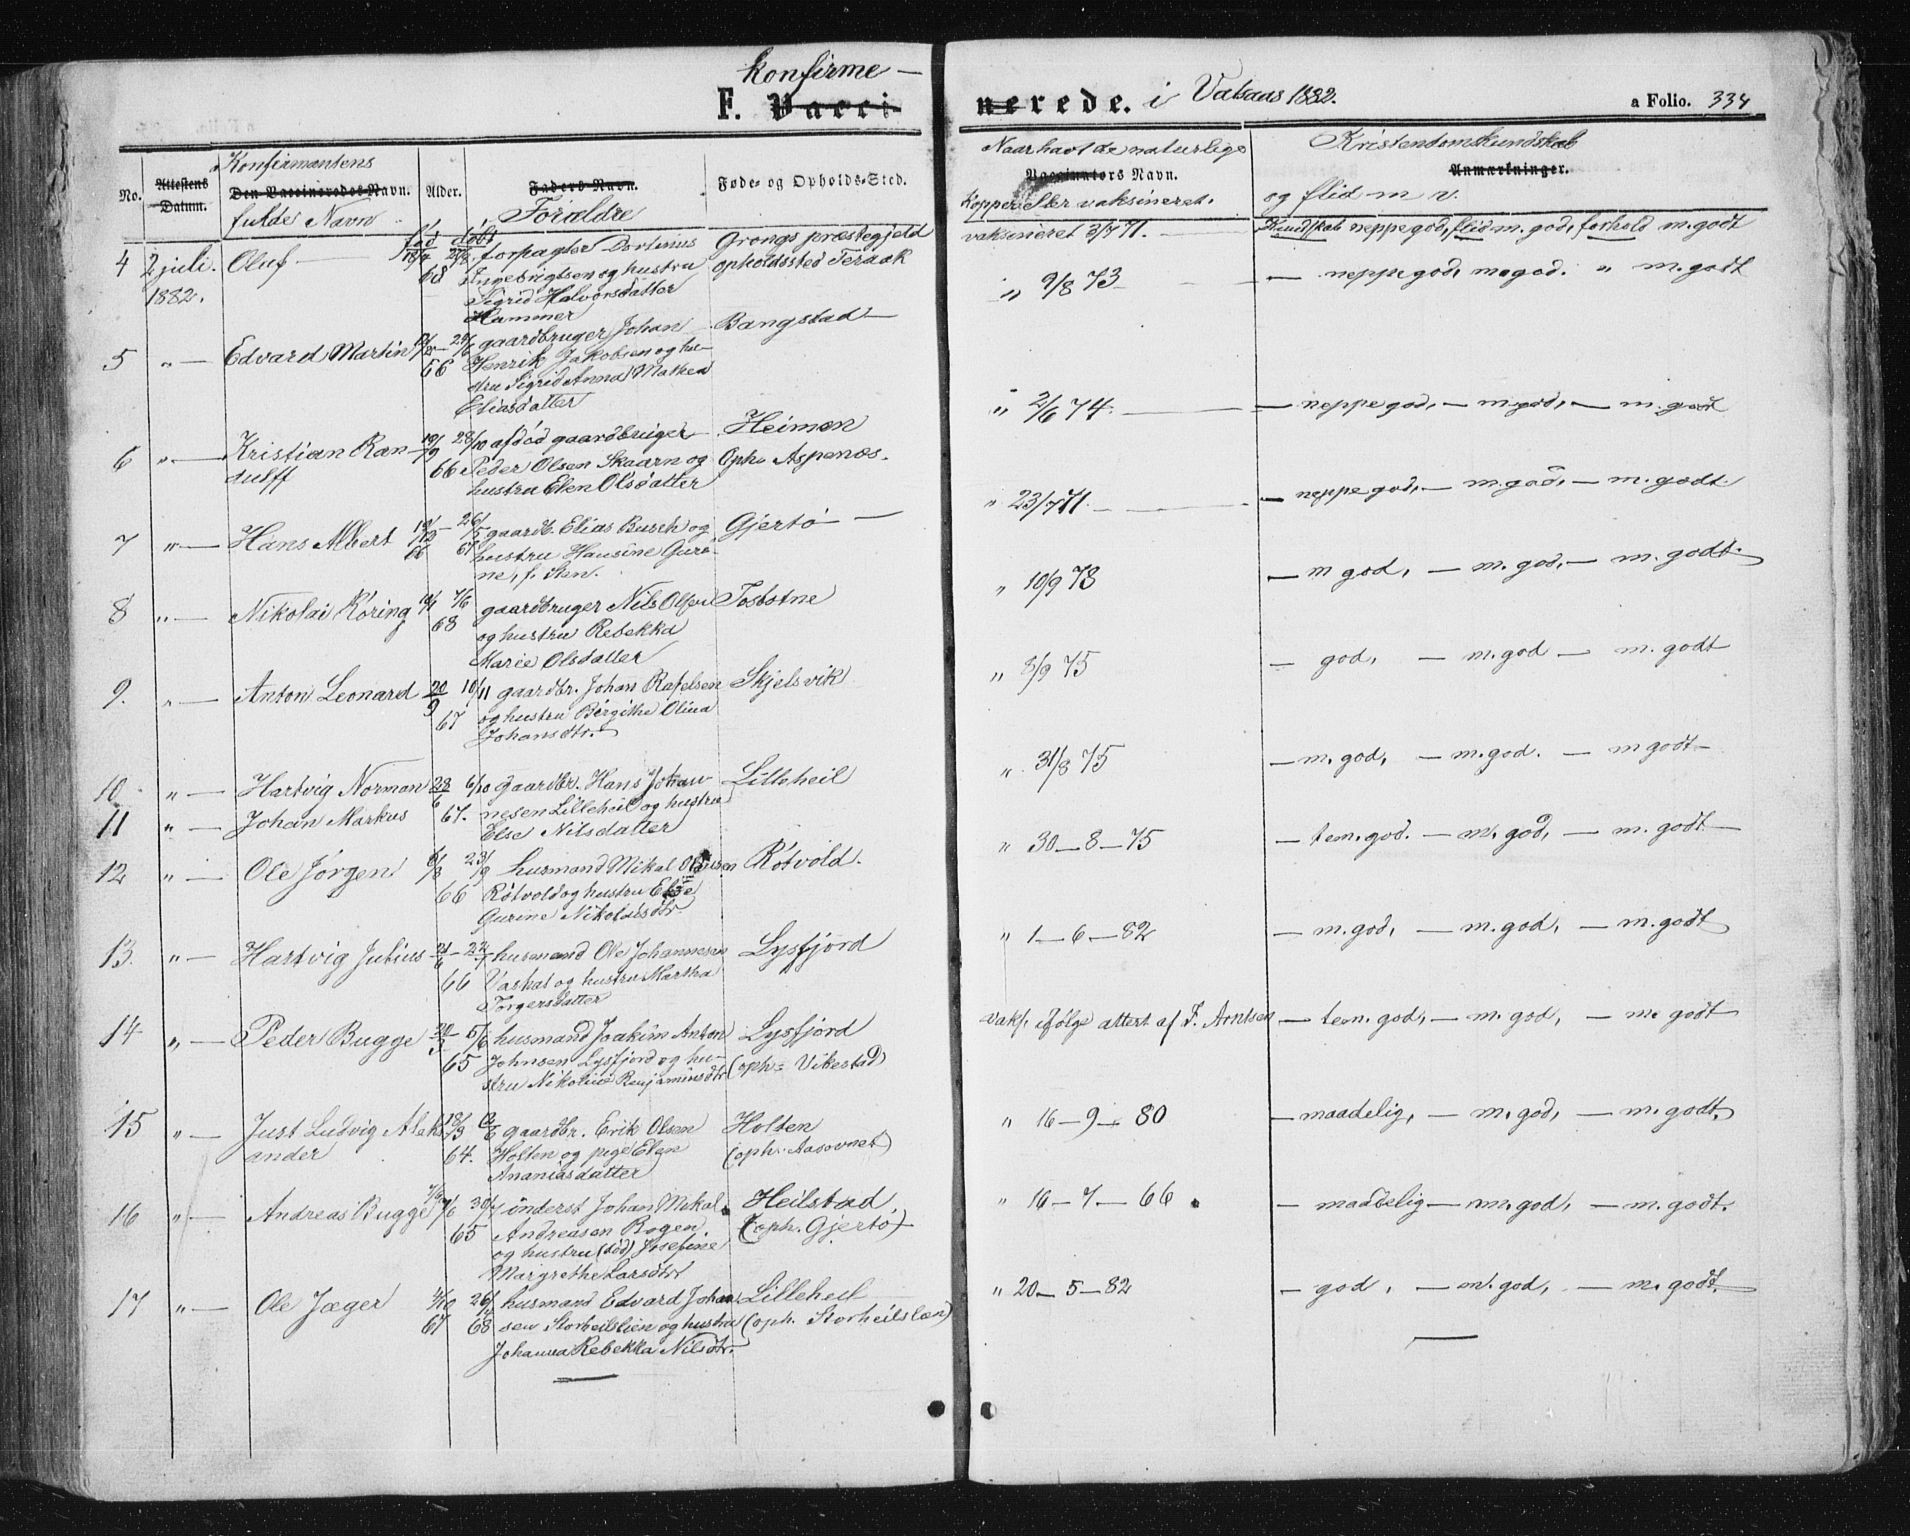 konfirme-
F. Vacci-
nerede. i Vatsaas 1882.
a Folio. 334
No.
Attestens Datum.
Konfirmantens
Den Vaccineredes Navn.
fulde Navn
Alder.
født døbt
Faders Navn.
Forældre
Føde- og Opholds-Sted.
Naar havt de naturlige
Vaccinators Navn.
Kopper eller vaksineret.
Kristendomskundskab
Anmærkninger.
og flid m v.
4 2 juli 1882. Oluf 68 forpagter
Ingebrigtsen og hustru
Sigrid Halvorsdatter
Hammer
Grongs præstegjeld
opholdssted Teraak
vaksineret 3/7 71.
Kundskab neppe god, flid m. god, forhold m. godt
5 " Edvard Martin 66 gaardbruger Johan
Henrik Jakobsen og hu-
stru Sigrid Anna Mathea
Eliasdatter
Bangstad
" 9/8 73
neppe god, m. god. " m. godt
6 " Kristian Ran-
dulff
28/10 66 afdød gaardbruger
Peder Olsen Skaarn og
hustru Elen Olsdatter
Heimen
Oph. Aspenæs.
" 2/6 74.
neppe god, m. god, m. god
7 " Hans Albert 66 26/5 67 gaardb. Elias Bursk og
hustru Hansine Guri-
ne, f. Sten.
Gjertø
" 23/7 71.
neppe god, m. god, m. godt.
8 " Nikolai Koring 7/6 68 gaardbruger Nils Olsen
og hustru Rebekka
Marie Olsdatter
Tosbotne
" 10/9 73
m god, m. god, m. godt.
9. " Anton Leonard 20/9 10/11 67 gaardbr. Johan Rafelsen
og hustru Birgithe Olina
Johansdtr.
Skjelsvik
" 8/9 75
god, m. god m. godt
10 " Hartvig Norman 23/6 6/10 67. gaardbr. Hans Johan-
11 " Johan Markus
nesen Lilleheil og hustru
Else Nilsdatter
Lilleheil
" 31/8 75
m. god, m. god. m godt
" 30-8-75
tem. god. m. god, m. godt
12 " Ole Jørgen 23/9 66 husmand Mikal Olausen
Røtvold og hustru Else
Gurine Nikolaisdtr.
Røtvold.
" 1-6-82
m. god, m. god, m. godt
13. " Hartvig Julius 21/6 22/7 66 husmand Ole Johannesen
Vashal og hustru Martha
Torgersdatter
Lysfjord
vaks. ifølge attest af F. Arntsen
tem. god, m. god, m. godt
14 " Peder Bugge 20/3 5/6 65 husmand Joakim Anton
Johnsen Lysfjord og hu-
stru Nikoline Benjaminsdtr.
Lysfjord
(oph= Vikestad)
" 16-9-80
maadelig, m. god, m. godt.
15 " Just Ludvig Aleks-
ander
18/3 64. gaardbr. Erik Olsen
Holten og pige Elen
Ananiasdatter
Holten
(oph. Aasovnet)
" 16-7-66
maadelig m. god, m. godt.
16 " Andreas Bugge 30/7 65 inderst Johan Mikal
Andreasen Bogen
og hustru (død) Josefine
Margrethe Larsdtr
Heilstad,
(oph. Gjertø)
" 20-5-82
god, m. god, m. godt.
17 " Ole Jæger 67 68 husmand Edvard Johan-
sen Storheilslien og hustru
Johanna Rebekka Nilsdtr.
Lilleheil
(oph. Storheilslæn)